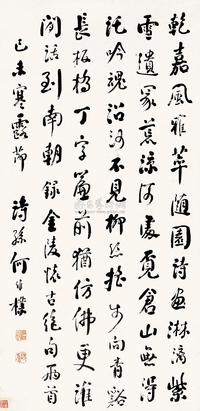 乾嘉風雅萃隨園詩畫淋漓紫
雪遺冢荒涼何處覓倉山無得
託吟魂沿河不見柳絲搖步向青谿
長板橋丁字簾前猶仿佛更誰
閒話到南朝錄金陵懷古絕句兩首
己未寒露節 詩孫何維樸